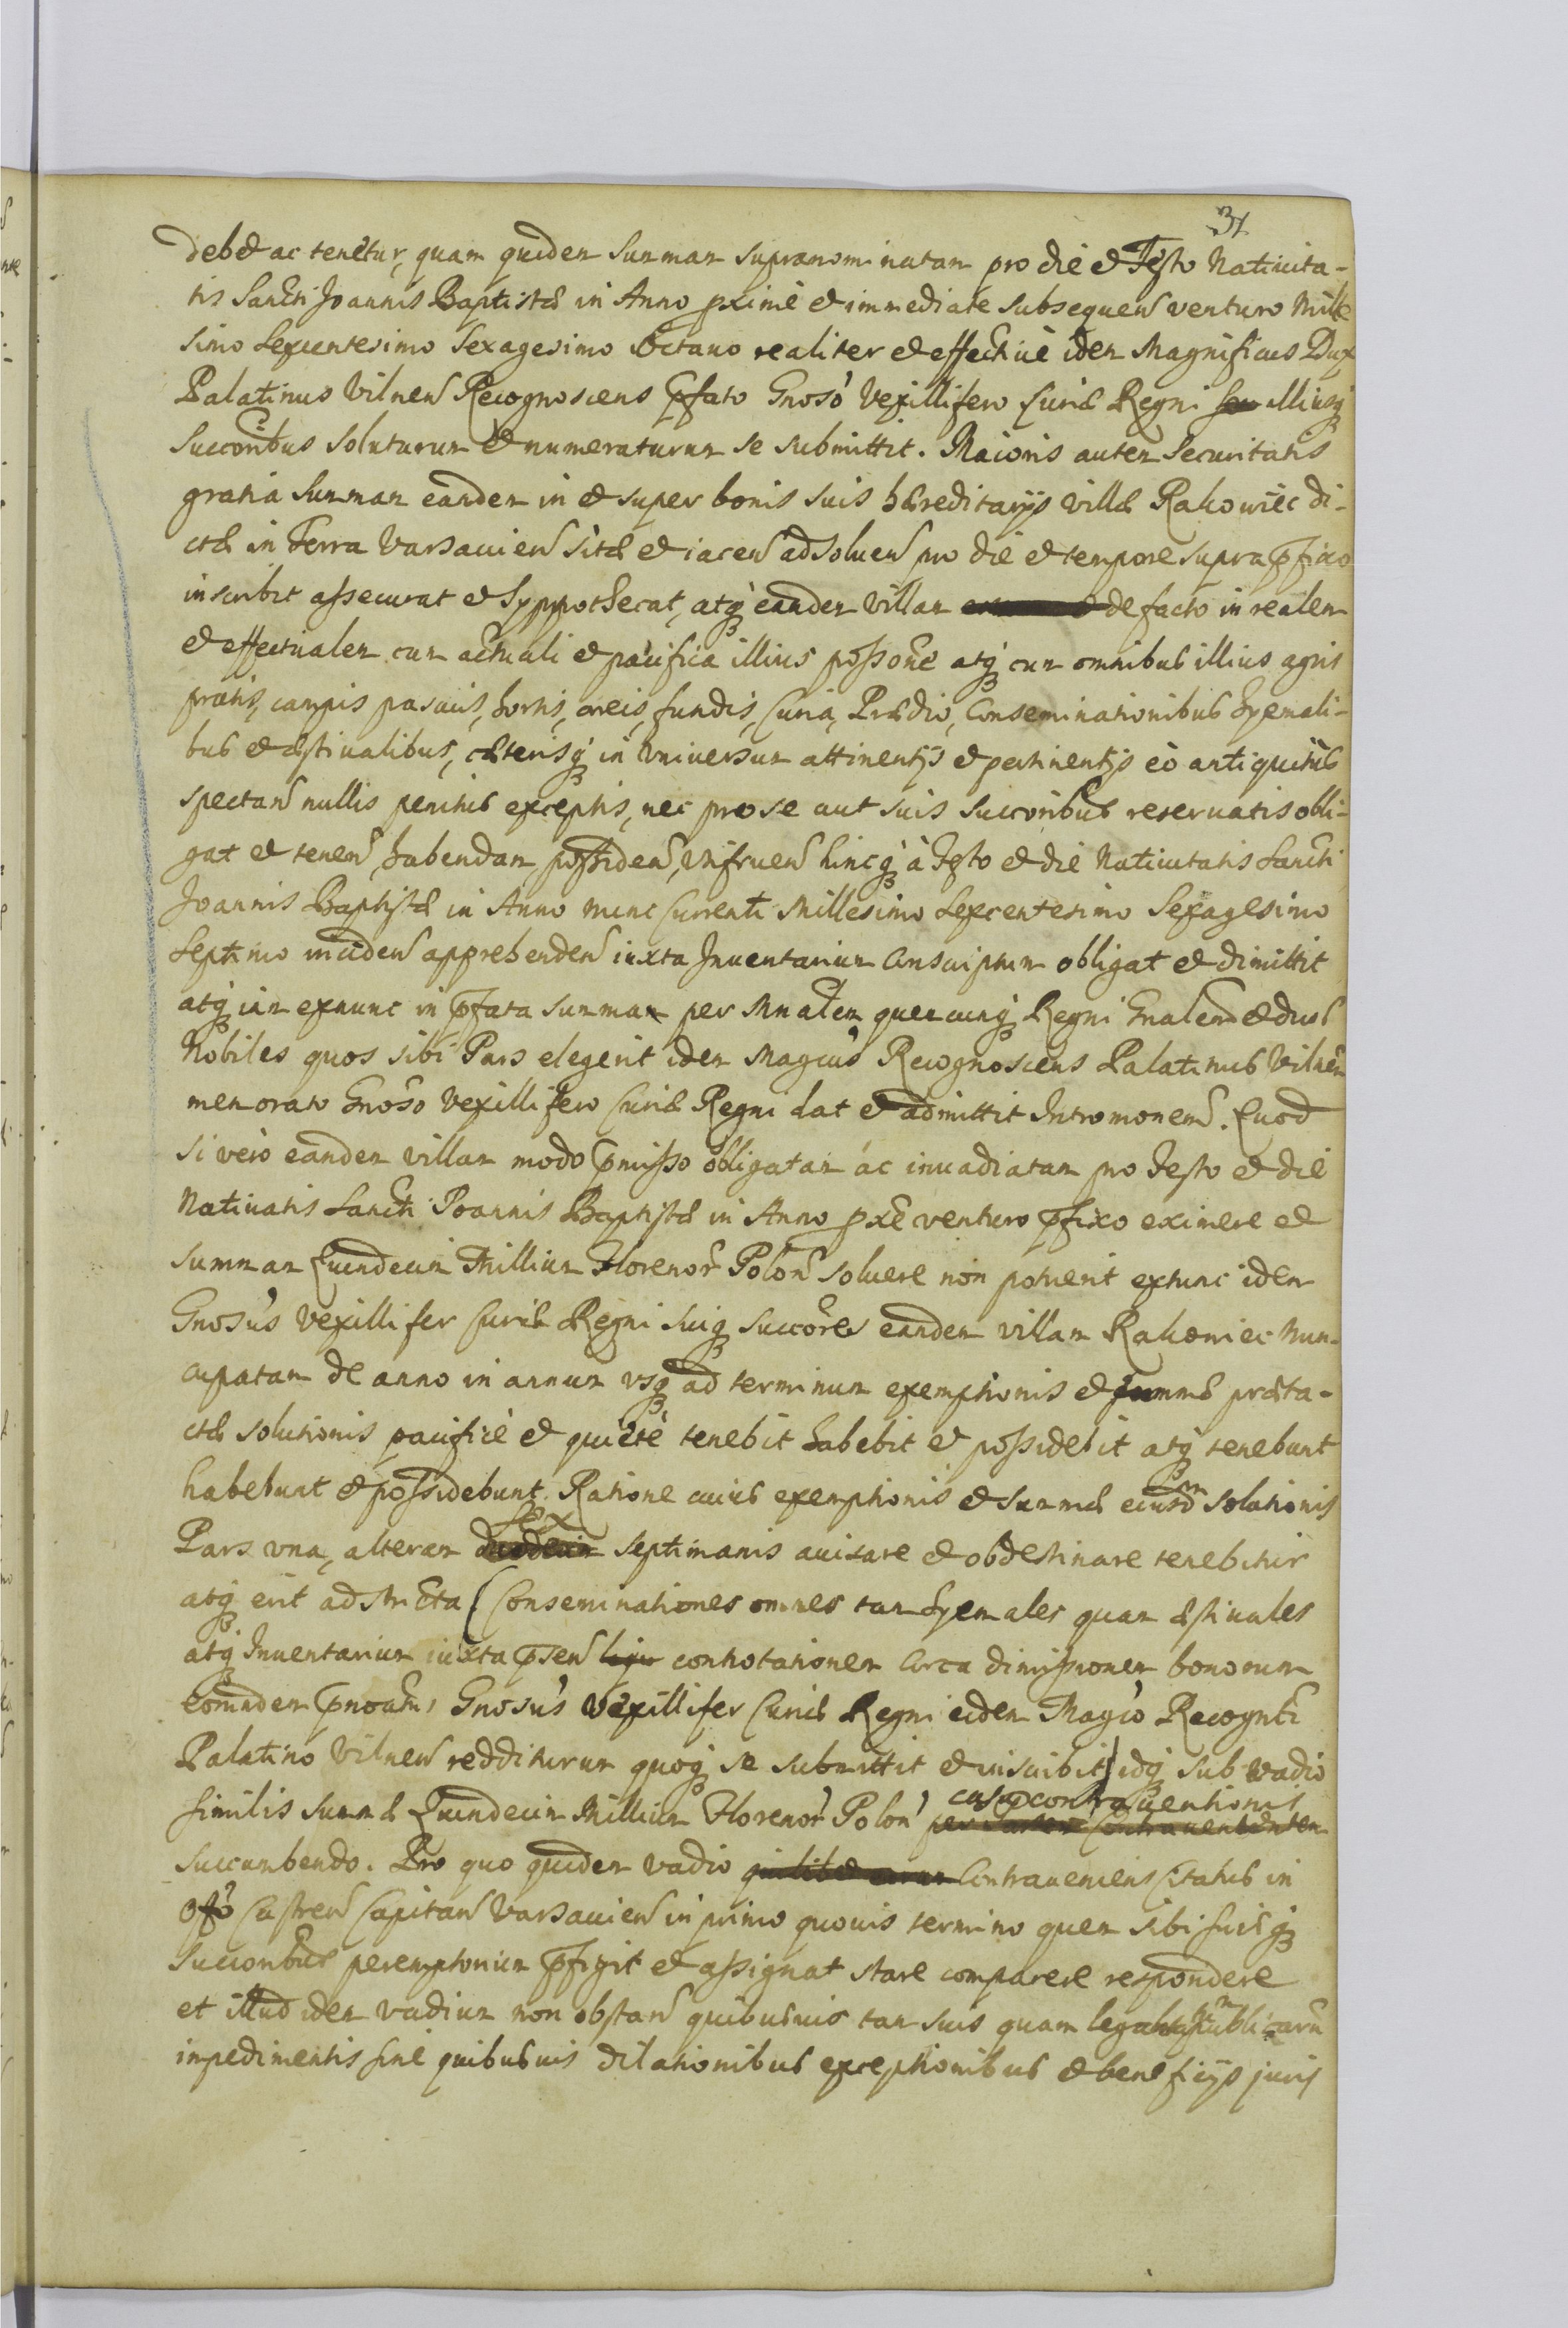 31
debet ac tenetur, quam quidem summam supranominatam pro die et Festo Nativita-
tis Sancti Joannis Baptistæ in Anno proximè et immediate subsequeñ venturo Mille
simo Sexcentesimo Sexagesimo Octavo realiter et effectivè idem Magnificus Dux
Palatinus Vilneñ Recognoscens pfato Gnoso Vexillifero Curiæ Regni illiusq
Succoribus soluturum et numeraturum se submittit. Maioris autem Securitatis
gratia Summam eandem in et super bonis suis hæreditarijs villæ Rakowiec di-
ctæ in Terra Varsavieñ sitæ et iaceñ ad solueñ pro die et tempore supra pfixo
inscribit assecurat et Hyppothecat, atq eandem Villam de facto in realem
et effectualem cum actuali et pacifica illius possone atq cum omnibus illius agris
pratis, campis pascuis, hortis, areis, fundis, Curia, Prædio, Conseminationibus hyemali-
bus et æstivalibus, cæterisq in Vniversum attinentijs et pertinentijs eò antiquitus
spectañ nullis penitus exceptis, nec pro se aut suis Succoribus reservatis obli-
gat et teneñ, habendam, possideñ, Vnfrueñ hincq à Festo et die Nativitatis Sancti
Joannis Baptistæ in Anno nunc Currenti Millesimo Sexcentesimo Sexagesimo
Septimo incideñ apprehendeñ iuxta Inventarium Conscriptum obligat et dimittit
atq iam exnunc in pfata summam per Mnalem quemcunq Regni Gnalem et duos
Nobiles quos sibi Pars elegerit idem Magcus Recognoscens Palatinus Vilneñ
memorato Gnoso Vexillifero Curiæ Regni dat et admittit Intromoneñ. Quod
si verò eandem villam modo pmisso obligatam ac invadiatam pro Festo et die
Nativatis Sancti Joannis Baptistæ in Anno pxe venturo pfixo eximere et
Summam Quindecim Millium Florenor Poloñ soluere non potuerit extunc idem
Gnosus Vexillifer Curiæ Regni Suiq Succores eandem villam Rakowiec Nun-
cupatam de anno in annum vsq ad terminum exemptionis et summæ præta-
ctæ solutionis pacificè et quietè tenebit habebit et possidebit atq tenebunt
habebunt et possidebunt. Ratione cuius exemptionis et Summæ eiusdm solutionis
sex
Pars vna, alteram duodecim septimanis avisare et obdestinare tenebitur
atq erit adstricta (Conseminationes omnes tam Hyemales quam æstivales
atq Inventarium iuxta pseñ connotationem Circa dimissionem bonorum
eorundem Gnosus Vexillifer Curiæ Regni eidem Magco Recognti
Palatino Vilneñ redditurum quoq se submittit et inscribit) idq sub vadio
casu contraventionis
similis Summæ Quindecim Millium Florenor Poloñ
succumbendo. Pro quo quidem vadio Contraveniens Citatus in
Offo Castreñ Capitañ Varsavieñ in primo quovis termino quem sibi suisq
Succoribus peremptorium pfigit et assignat stare comparere respondere
et illud idem vadium non obstañ quibusvis tam suis quam
impedimentis sine quibusvis dilationibus exceptionibus et beneficijs juris